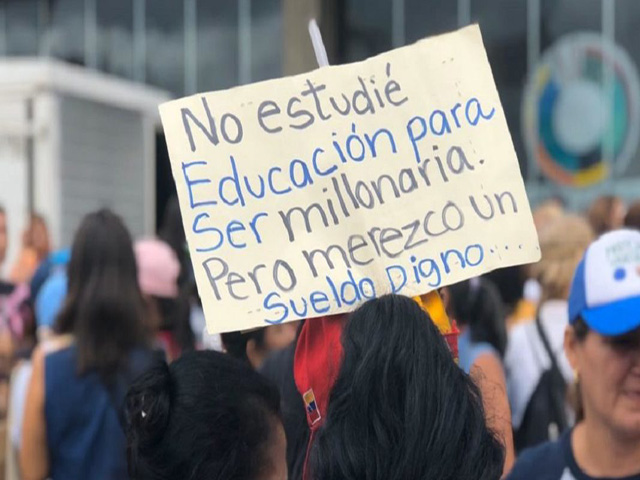 No estudié
Educación para
Ser millonaria.
Pero merezco un
Sueldo Digno....